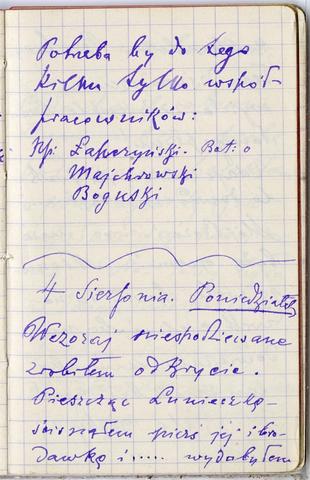 Potrzeba by do tego
kilku tylko współ-
pracowników:
Np. Łapczyński. Bat: o
Majchrowski
Boguski
4 Sierpnia. Poniedziałek
Wczoraj niespodziewane
zrobiłem odkrycie.
Pieszcząc Lunieczkę
ścisnąłem pierś jej i bro-
dawkę i ..... wydobyłem